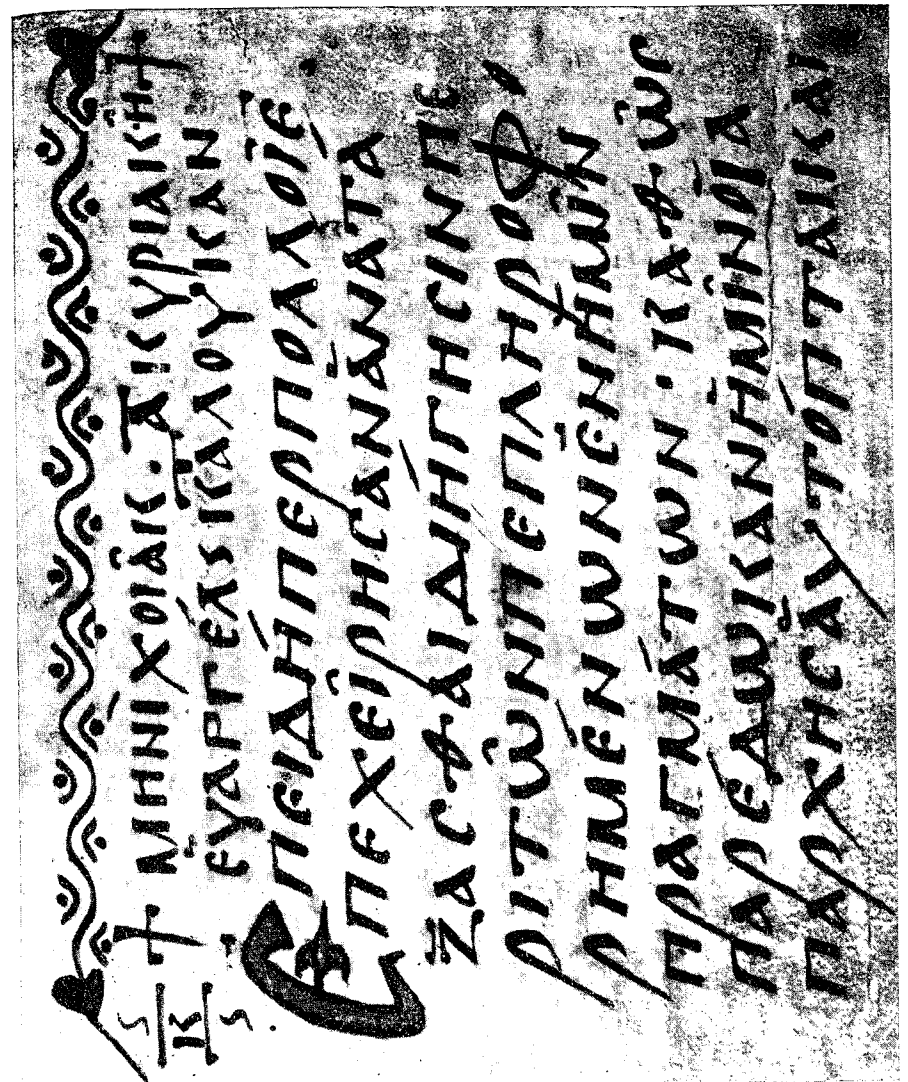 S
Κ
S
+ ΜΗΝΙ ΧΟΙΑΚ · Α ΚΥΡΙΑΚΗ +
ΕΥΑΓΓΕΛS ΚΑΤ ΛΟΥΚΑΝ
ΕΠΕΙΔΗΠΕΡΠΟΛΛΟΙΕ
ΠΕΧΕΙΡΗCΑΝΑΝΑΤΑ
ΖΑCΘΑΙΔΙΗΓΗCΙΝΠΕ
ΡΙΤΩΝΠΕΠΛΗΡΟΦΟ
ΡΗΜΕΝΩΝΕΝΗΜΙΝ
ΠΡΑΓΜΑΤΩΝ · ΚΑΘΩC
ΠΑΡΕΔΩΚΑΝΗΜΙΝΟΙΑ
ΠΑΡΧΗCΑΥΤΟΠΤΑΙΚΑΙ